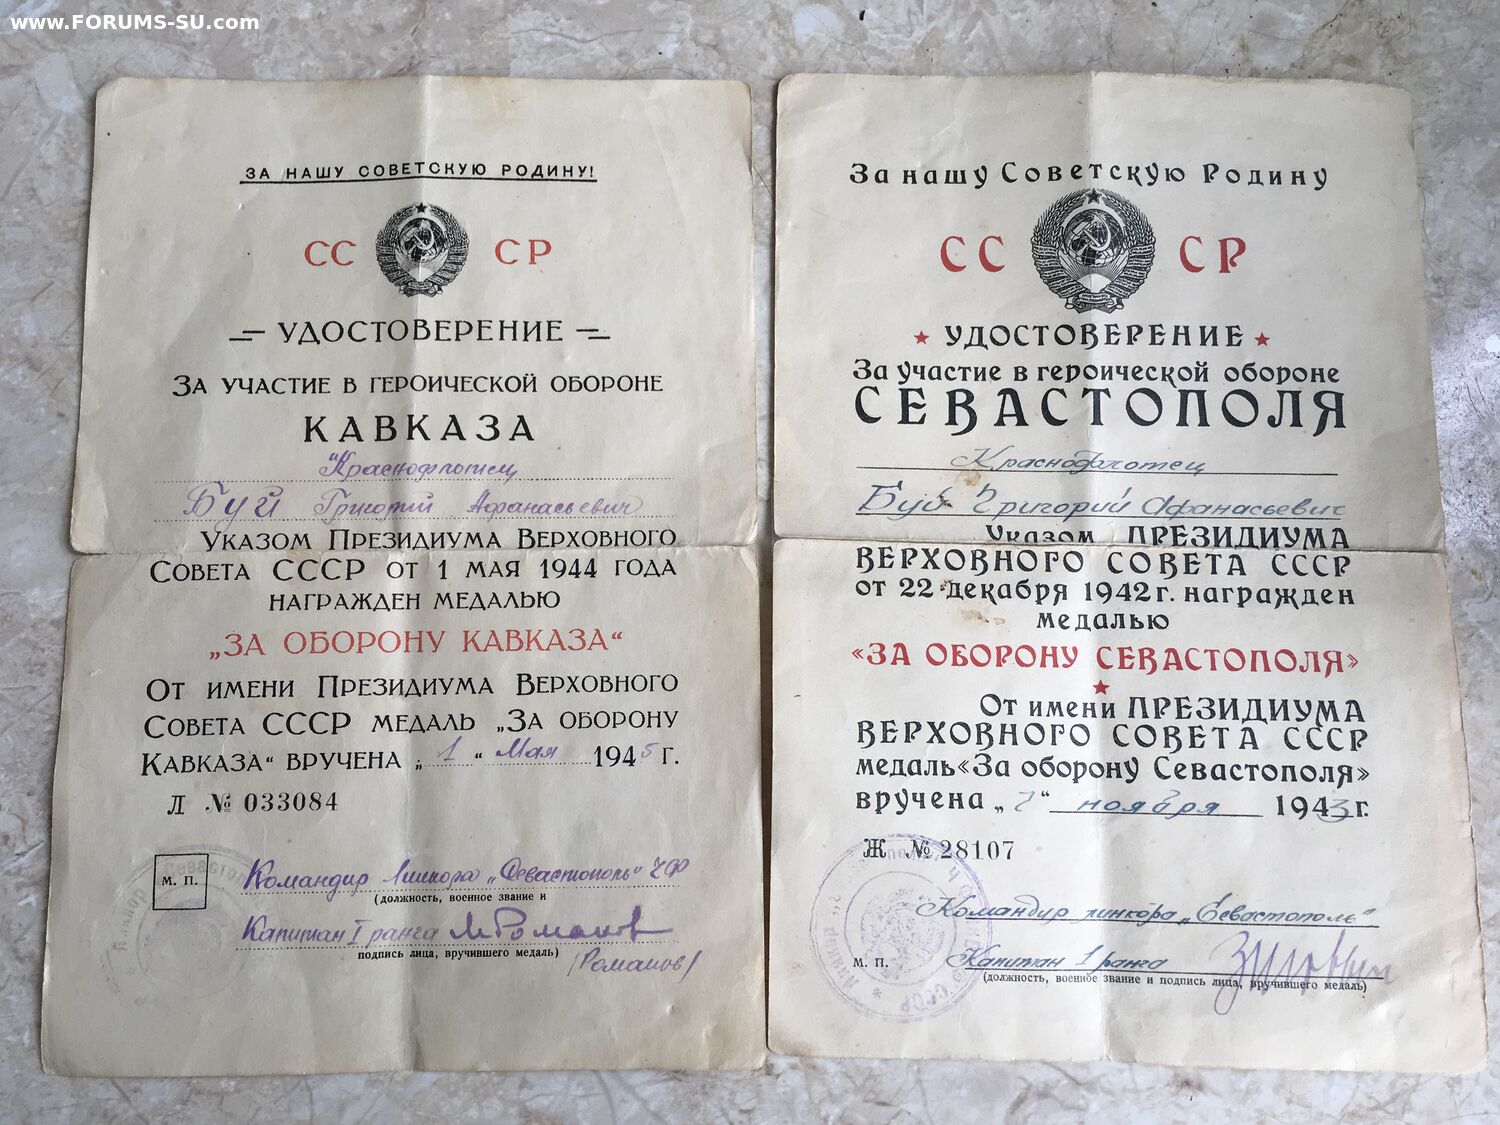 www.FORUMS-SU.com
ЗА НАШУ СОВЕТСКУЮ РОДИНУ!
СС СР
УДОСТОВЕРЕНИЕ
ЗА УЧАСТИЕ В ГЕРОИЧЕСКОЙ ОБОРОНЕ
КАВКАЗА
"Краснофлотец
Буй Григорий Афанасьевич
УКАЗОМ ПРЕЗИДИУМА ВЕРХОВНОГО
СОВЕТА СССР ОТ 1 МАЯ 1944 ГОДА
НАГРАЖДЕН МЕДАЛЬЮ
„ЗА ОБОРОНУ КАВКАЗА“
ОТ ИМЕНИ ПРЕЗИДИУМА ВЕРХОВНОГО
СОВЕТА СССР МЕДАЛЬ „ЗА ОБОРОНУ
КАВКАЗА“ ВРУЧЕНА „1“ Мая 1945 г.
Л № 033084
М. П.
Командир Линкора „Севастополь" ЧФ
(должность, военное звание и
Капитан I ранга Романов
подпись лица, вручившего медаль)
(Романов)
За нашу Советскую Родину
СС СР
УДОСТОВЕРЕНИЕ
За участие в героической обороне
СЕВАСТОПОЛЯ
Краснофлотец
Буй Григорий Афанасьевич
Указом ПРЕЗИДИУМА
ВЕРХОВНОГО СОВЕТА СССР
от 22 декабря 1942 г. награжден
медалью
«ЗА ОБОРОНУ СЕВАСТОПОЛЯ»
От имени ПРЕЗИДИУМА
ВЕРХОВНОГО СОВЕТА СССР
медаль «За оборону Севастополя»
вручена „7“ ноября 1943 г.
Ж № 28107
Командир линкора „Севастополь"
М. П.
Капитан 1 ранга
(должность, военное звание и подпись лица, вручившего медаль)